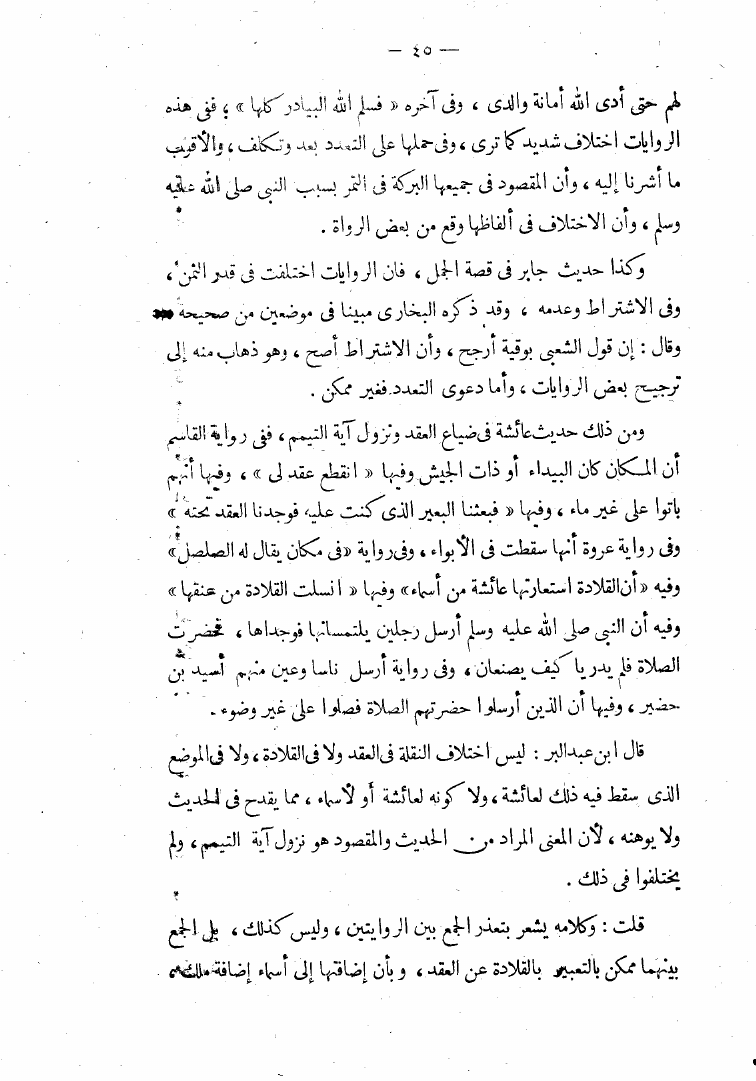 — ٤٥ —
لهم حتى أدى الله أمانة والدى ، وفى آخره « فسلم الله البيادر كلها » ؛ ففى هذه
الروايات اختلاف شديد كما ترى ، وفى حملها على التعدد بعد وتكلف ، والأقرب
ما أشرنا إليه ، وأن المقصود فى جميعها البركة فى التمر بسبب النبى صلى الله عليه
وسلم ، وأن الاختلاف فى ألفاظها وقع من بعض الرواة .
وكذا حديث جابر فى قصة الجمل ، فان الروايات اختلفت فى قدر الثمن ،
وفى الاشتراط وعدمه ، وقد ذكره البخارى مبينا فى موضعين من صحيحة
وقال : إن قول الشعبى بوقية أرجح ، وأن الاشتراط أصح ، وهو ذهاب منه إلى
ترجيح بعض الروايات ، وأما دعوى التعدد فغير ممكن .
ومن ذلك حديث عائشة فى ضياع العقد ونزول آية التيمم ، ففى رواية القاسم
أن المكان كان البيداء أو ذات الجيش وفيها « انقطع عقد لى » ، وفيها أنهم
باتوا على غير ماء ، وفيها « فبعثنا البعير الذى كنت عليه فوجدنا العقد تحته »
وفى رواية عروة أنها سقطت فى الأبواء ، وفى رواية « فى مكان يقال له الصلصل »
وفيه « أن القلادة استعارتها عائشة من أسماء » وفيها « انسلت القلادة من عنقها »
وفيه أن النبى صلى الله عليه وسلم أرسل رجلين يلتمسانها فوجداها ، فحضرت
الصلاة فلم يدريا كيف يصنعان ، وفى رواية أرسل ناسا وعين منهم أسيد بن
حضير ، وفيها أن الذين أرسلوا حضرتهم الصلاة فصلوا على غير وضوء .
قال ابن عبد البر : ليس اختلاف النقلة فى العقد ولا فى القلادة ، ولا فى الموضع
الذى سقط فيه ذلك لعائشة ، ولا كونه لعائشة أو لأسماء ، مما يقدح فى الحديث
ولا يوهنه ، لأن المعنى المراد من الحديث والمقصود هو نزول آية التيمم ، ولم
يختلفوا فى ذلك .
قلت : وكلامه يشعر بتعذر الجمع بين الروايتين ، وليس كذلك ، بل الجمع
بينهما ممكن بالتعبير بالقلادة عن العقد ، وبأن إضافتها إلى أسماء إضافة ملك ،